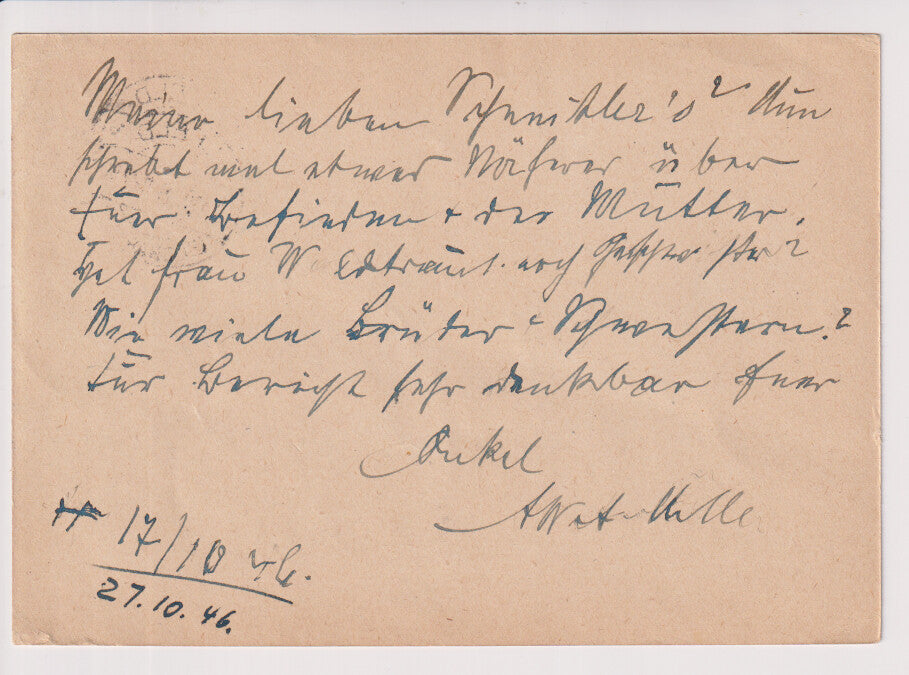 Meine lieben Schnitzler's! Nun
schreibt mal etwas Näheres über
Euer Befinden + der Mutter.
Hat Frau Waldtraut noch Geschwister?
Wie viele Brüder - Schwestern?
Für Bericht sehr dankbar Euer
Onkel
17/10 46.
27.10.46.